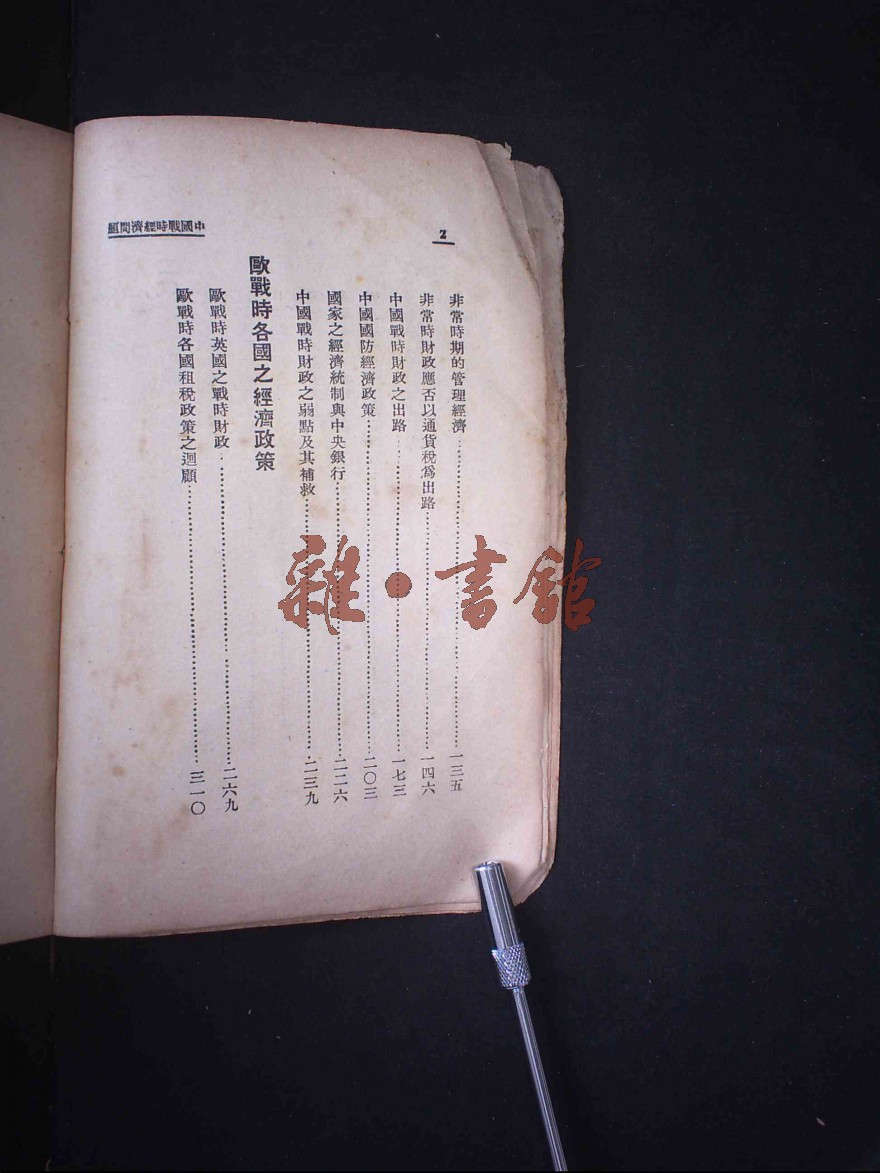 中國戰時經濟問題
2
非常時期的管理經濟……一三五
非常時財政應否以通貨稅爲出路……一四六
中國戰時財政之出路……一七三
中國國防經濟政策……二〇三
國家之經濟統制與中央銀行……二二六
中國戰時財政之弱點及其補救……二三九
歐戰時各國之經濟政策
歐戰時英國之戰時財政……二六九
歐戰時各國租稅政策之迴顧……三一〇
雜·書館